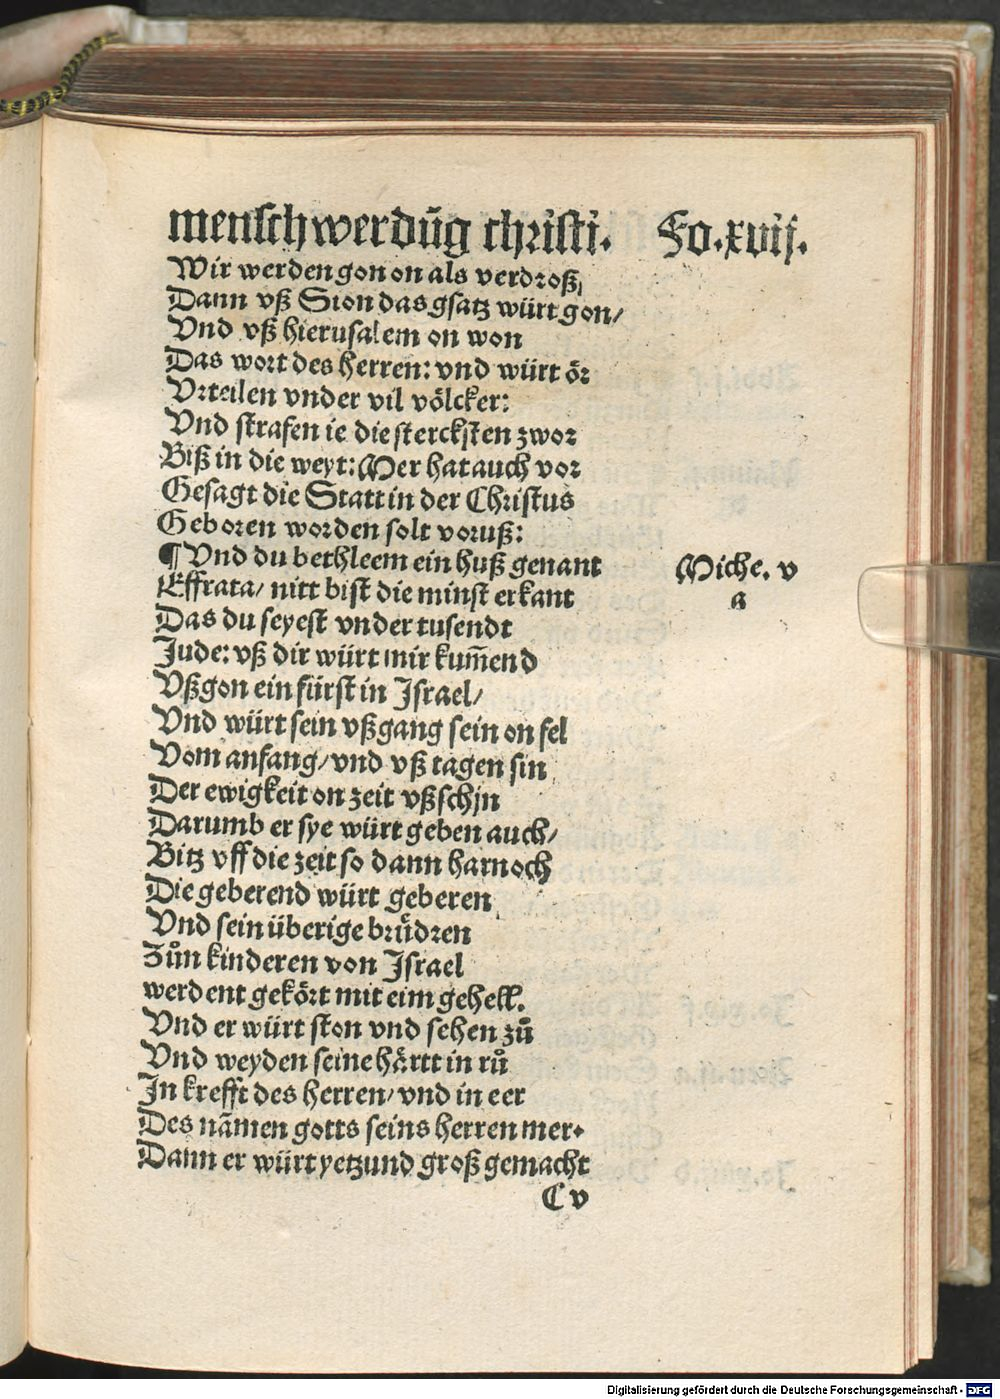 menschwerdūg christi. Fo.xvij.
Wir werden gon on als verdroß,
Dann vß Sion das gsatz würt gon/
Vnd vß hierusalem on won
Das wort des herren: vnd würt ör
Vrteilen vnder vil völcker:
Vnd strafen ie die stercksten zwor
Biß in die weyt: Mer hat auch vor
Gesagt die Statt in der Christus
Geboren worden solt voruß:
¶ Vnd du bethleem ein huß genant Miche. v
Effrata/ nitt bist die minst erkant a
Das du seyest vnder tusendt
Jude: vß dir würt mir kum̄end
Vßgon ein fürst in Israel/
Vnd würt sein vßgang sein on fel
Vom anfang/ vnd vß tagen sin
Der ewigkeit on zeit vßschjn
Darumb er sye würt geben auch/
Bitz vff die zeit so dann harnoch
Die geberend würt geberen
Vnd sein überige brůdren
Zůn kinderen von Israel
werdent gekört mit eim gehell.
Vnd er würt ston vnd sehen zů
Vnd weyden seine hårtt in rů
In krefft des herren/ vnd in eer
Des nāmen gotts seins herren mer.
Dann er würt yetzund groß gemacht
C v
Digitalisierung gefördert durch die Deutsche Forschungsgemeinschaft - DFG